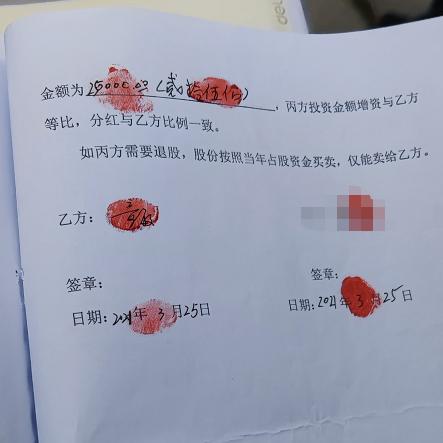 金额为25000.00（贰拾伍佰），丙方投资金额增资与乙方
等比，分红与乙方比例一致。
如丙方需要退股，股份按照当年占股资金买卖，仅能卖给乙方。
乙方：
签章： 签章：
日期：2021年3月25日 日期：2021年3月25日